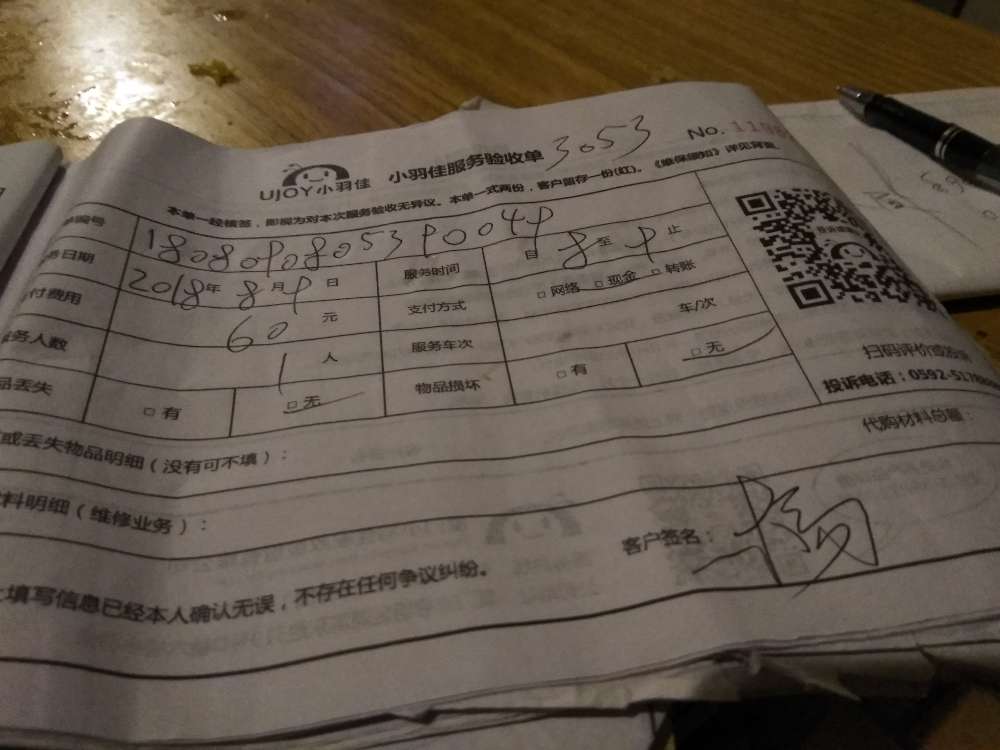 UJOY小羽佳 小羽佳服务验收单 3053 No.
本单一经楱签，即视为对本次服务验收无异议。本单一式两份，客户留存一份(红)。《维保须知》详见背面。
编号 1808090805390049
日期 2018年 8月9日 服务时间 自 8 至 9 止
付费用 60 元 支付方式 □网络 □现金 □转账
务人数 1 人 服务车次 车/次
品丢失 □有 □无 物品损坏 □有 □无
扫码评价或投诉
投诉电话：0592-517
或丢失物品明细（没有可不填）：
代购材料总额：
料明细（维修业务）：
客户签名：
填写信息已经本人确认无误，不存在任何争议纠纷。